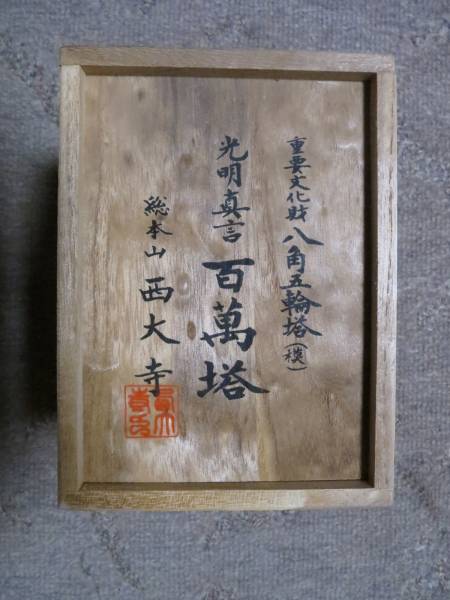 重要文化財 八角五輪塔(模)
光明真言 百萬塔
総本山 西大寺